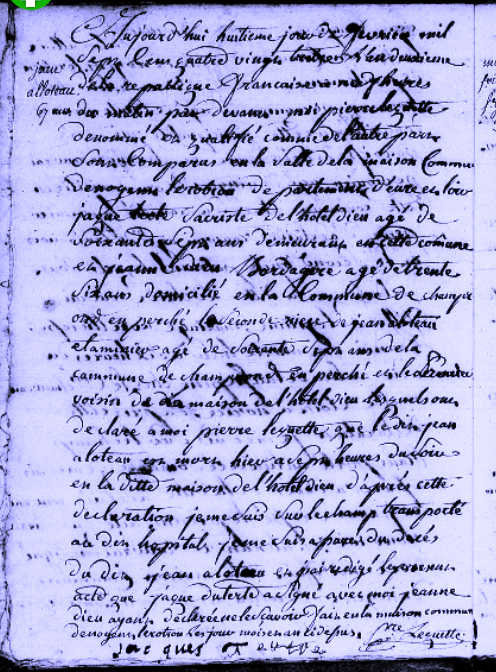 Aujourd'hui huitieme jour de fevrier mil
sept cent quatre vingt treize l'an deuxieme
jean
de la republique francaise a neuf heures
aloteau
67 ans
du matin par devant moi pierre lequette
denommé et qualifié comme de l'autre part
sont comparus en la salle de la maison Commune
de nogent le rotrou de partement d'eure et loir
jaque sacriste de l'hotel dieu agé de
soixante sept ans demeurant en cette comune
et jeanne dieu agé de trente
six ans domicilié en la Commune de champr
ond en perche la seconde niece de jean aloteau
etaminier agé de soixante sept ans de la
commune de champrond en perche et le premier
voisin de la maison de l'hotel dieu lesquels ont
declaré a moi pierre lequette que le dit jean
aloteau est mort hier a sept heures du soir
en la ditte maison de l'hotel dieu d'après cette
déclaration je me suis sur le champ transporté
au dit hopital je me suis assuré du decés
du dit jean aloteau et j'ai redigé le present
acte que jaque duterte a signé avec moi jeanne
dieu ayant déclaré ne le scavoir fait en la maison commune
de nogent le rotrou les jour mois et an ci dessus
pre Lequette
jacques